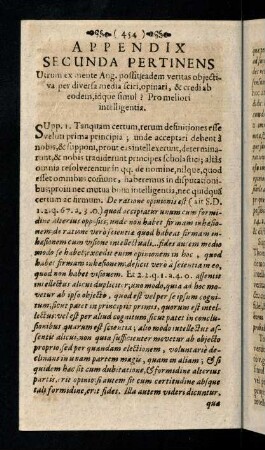 ( 454 )
APPENDIX
SECUNDA PERTINENS
Utrum ex mente Ang. possit eadem veritas objecti-
va per diversa media sciri, opinari, & credi ab
eodem, idque simul? Pro meliori
intelligentia.
SUpp. 1. Tanquam certum, terum definitiones esse
velut prima principia; unde acceptari debent à
nobis, & supponi, prout eas intellexerunt, determina-
runt, & nobis tradiderunt principes scholastici; aliàs
omnia resolverentur in qq. de nomine, nilque, quod
esset omnibus commune, haberemus in disputationi-
bus, proin nec mutua buna intelligentia, nec quidquā
certum ac firmum. De ratione opinionis est (ait S.D.
1. 2. q. 67. a. 3. O.) quod accipiatur unum cum formi-
dine alterius oppositi; unde non habet firmam inhæsio-
nem: de ratione verò scientiæ quod habeat firmam in-
hæsionem cum visione intellectuali... fides autem medio
modo se habet; excedit enim opinionem in hoc, quod
habet firmam inhæsionem; deficit verò à scientia in eo,
quod non habet visionem. Et 2. 2. q. 1. a. 4. O. assentit
intellectus alicui dupliciter; uno modo, quia ad hoc mo-
vetur ab ipso objecto, quod est vel per se ipsum cogni-
tum, sicut patet in principiis primis, quorum est intel-
lectus: vel est per aliud cognitum, sicut patet in conclu-
sionibus quarum est scientia; alio modo intellectus as-
sentit alicui, non quia sufficienter movetur ab objecto
proprio, sed per quandam electionem, voluntariè de-
clinans in unam partem magis, quam in aliam; & si
quidem hæc sit cum dubitatione, & formidine alterius
partis, erit opinio: si autem sit cum certitudine absque
tali formidine, erit fides. Illa autem videri dicuntur,
qua